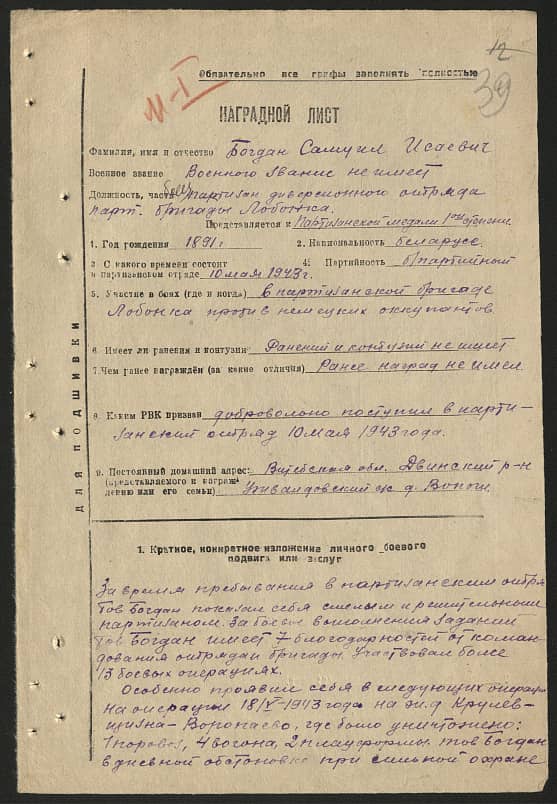 12
39
Обязательно все графы заполнять полностью
М-I
НАГРАДНОЙ ЛИСТ
Фамилия, имя и отчество Богдан Самуил Исаевич
Военное звание Военного звание не имеет
Должность, часть боец партизан диверсионного отряда
парт. бригады Лобонка.
Представляется к Партизанской медали 1ой степени
1. Год рождения 1891 г. 2. Национальность беларусс
3 С какого времени состоит 4. Партийность б/партийный
в партизанском отряде 10 мая 1943 г.
5. Участие в боях (где и когда) в партизанской бригаде
Лобонка против немецких оккупантов
6. Имеет ли ранения и контузии Ранений и контузий не имеет
7. Чем ранее награждён (за какие отличия) Ранее наград не имел
8. Каким РВК призван добровольно поступил в парти-
занский отряд 10 мая 1943 года.
9. Постоянный домашний адрес: Витебская обл. Двинский р-н
(представляемого к награж-
дению или его семьи) д.
ДЛЯ ПОДШИВКИ
1. Краткое, конкретное изложение личного боевого
подвига или заслуг
За время пребывания в партизанским отря-
тов Богдан показал себя смелым и решительным
партизаном. За боевые выполнения заданий
тов Богдан имеет 7 благодарностей от коман-
дования отряда и бригады. Участвовал более
15 боевых операциях.
Особенно проявил себя в следующих операци
на операции 18/V-1943 года на ж.д Крулев-
щизна-Воропаево, где было уничтожено:
1 паровоз, 4 вогона, 2 плауформы. тов Богдан
в дневной обстоновке при сильной охране